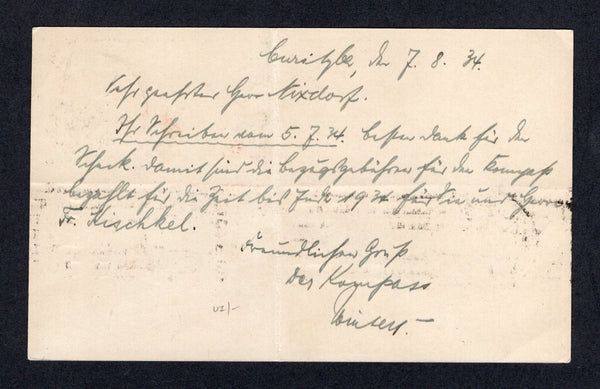 Curityba, den 7. 8. 34.
Sehr geehrter Herr Nixdorf.
Ihr Schreiben vom 5. 7. 34. besten Dank für den
Scheck. Damit sind die Bezugsgebühren für den Kompass
bezahlt für die Zeit bis Juli 1934 für Sie und Herrn
Fr. Kischkel.
Freundlichen Gruß
Der Kompass